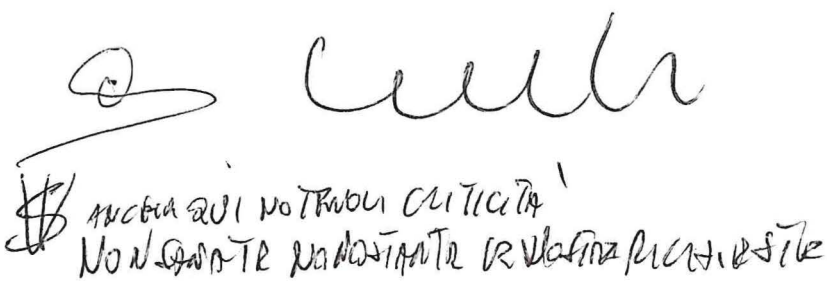 ANCORA QUI NOTEVOLI CRITICITÀ
NON SANATE NONOSTANTE LE VOSTRE RICHIESTE